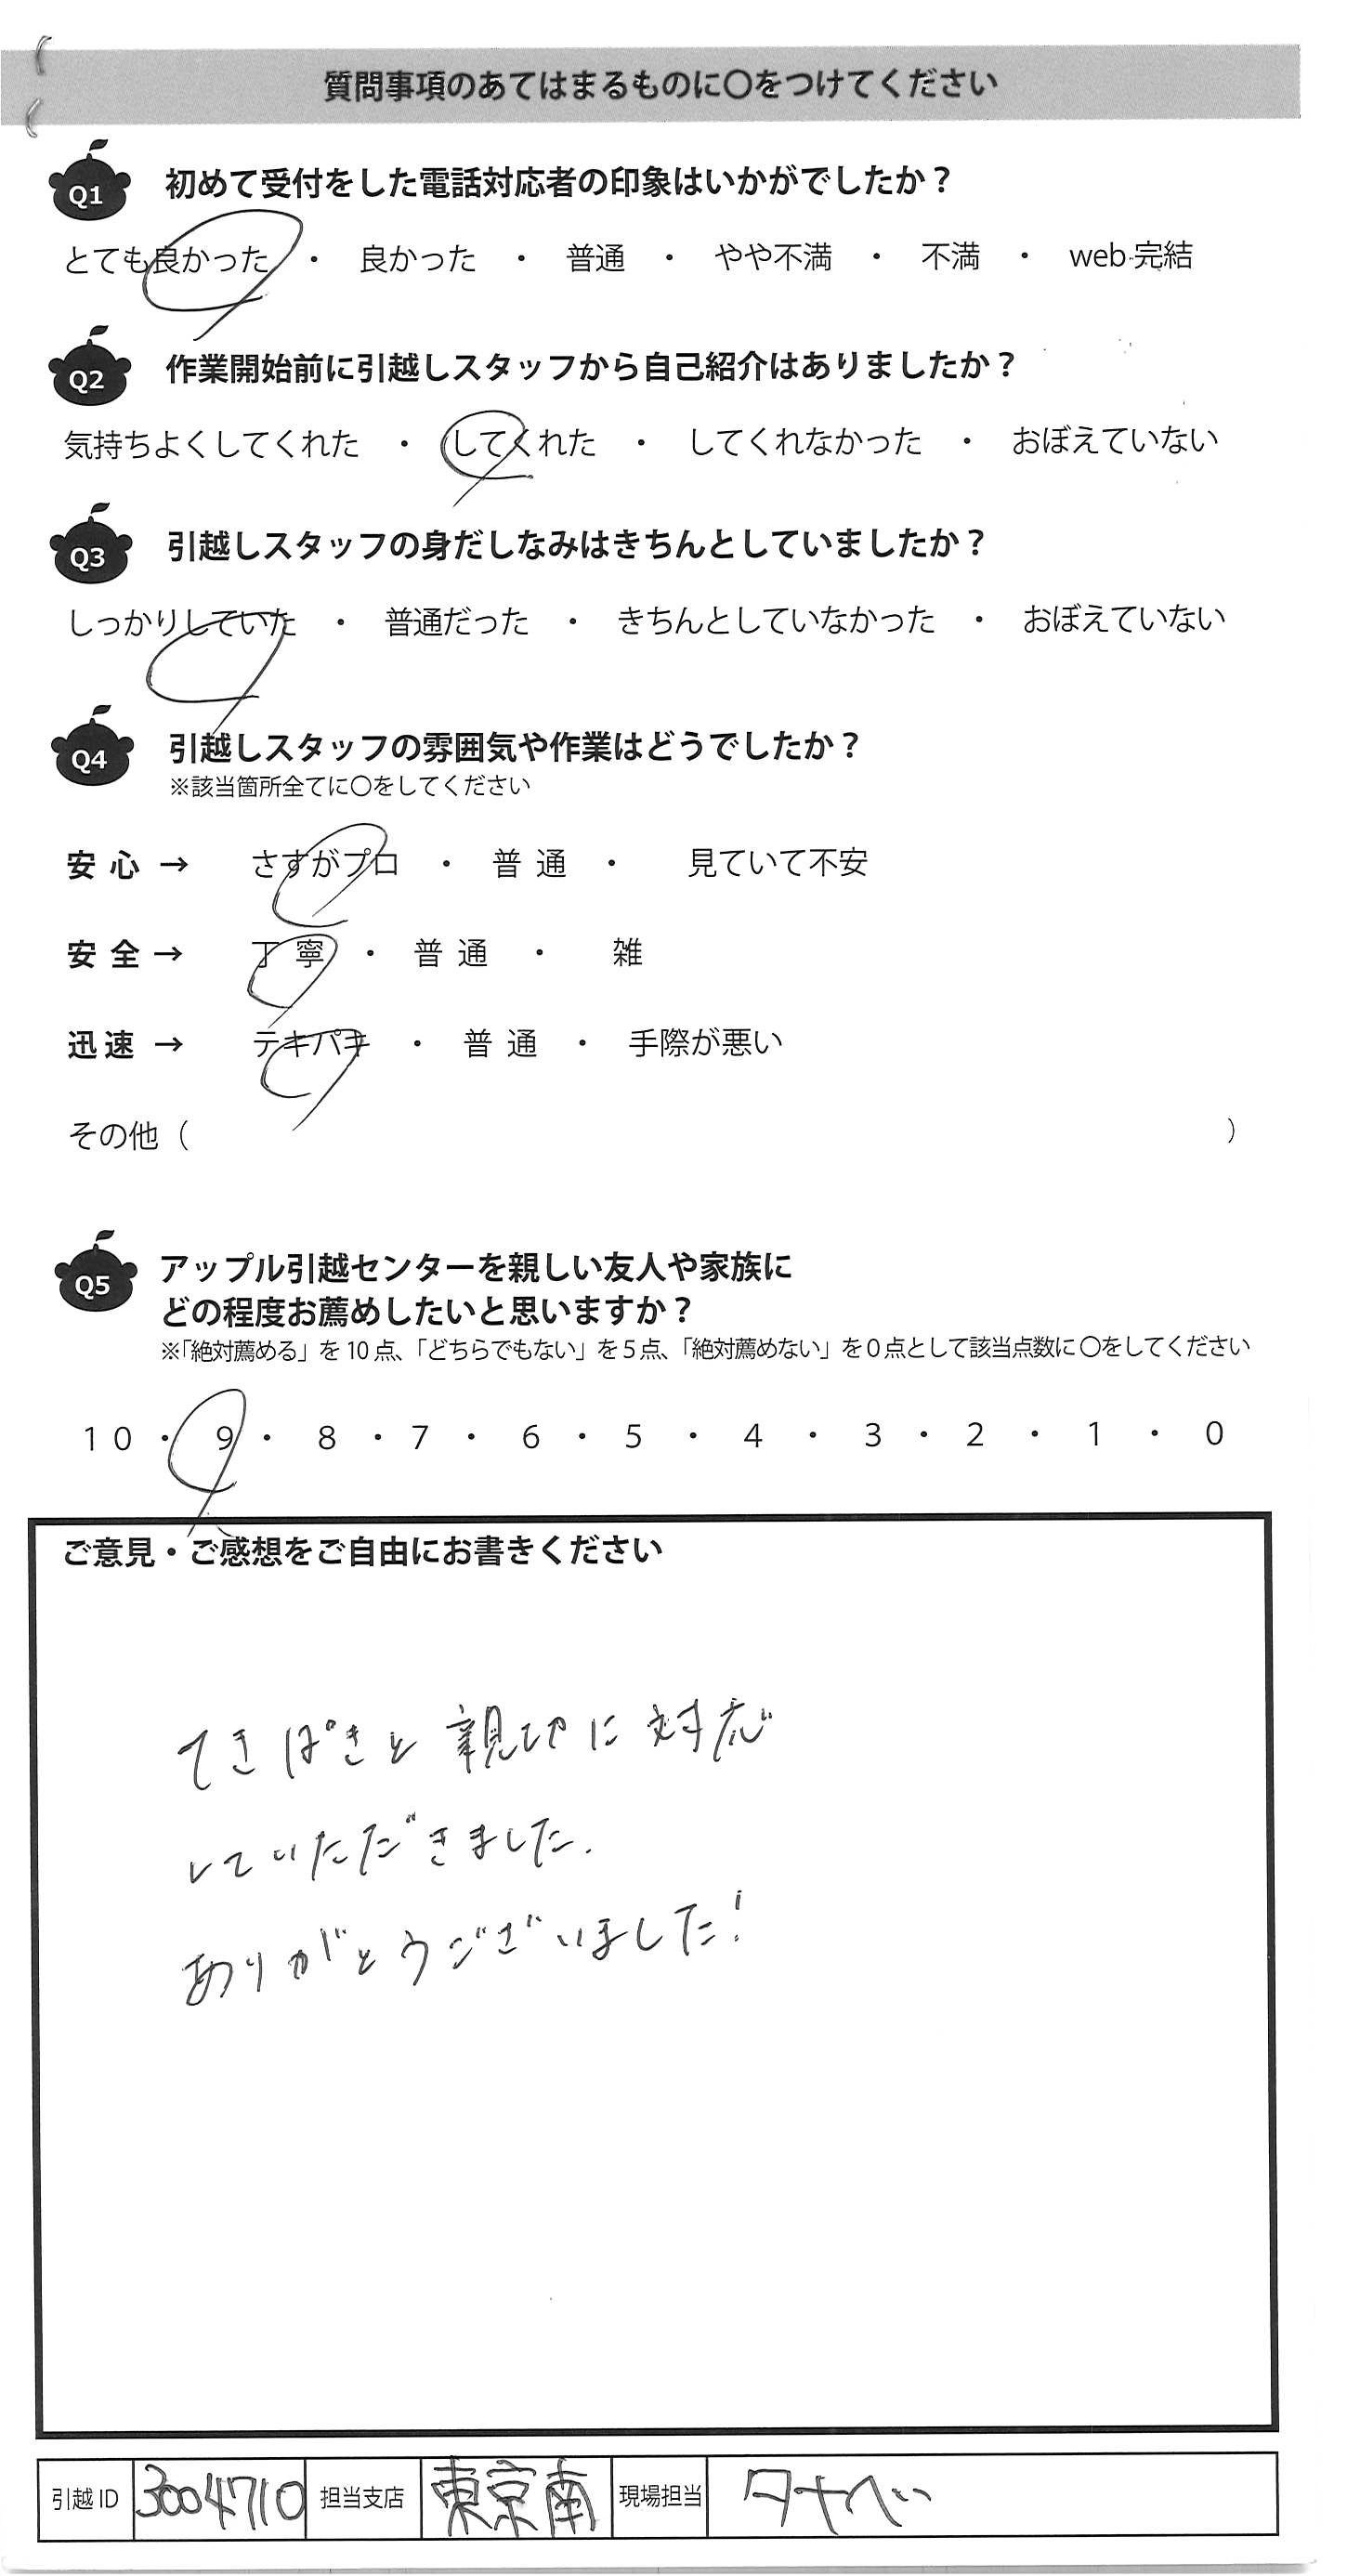 質問事項のあてはまるものに〇をつけてください
Q1 初めて受付をした電話対応者の印象はいかがでしたか？
とても良かった ・ 良かった ・ 普通 ・ やや不満 ・ 不満 ・ web完結
Q2 作業開始前に引越しスタッフから自己紹介はありましたか？
気持ちよくしてくれた ・ してくれた ・ してくれなかった ・ おぼえていない
Q3 引越しスタッフの身だしなみはきちんとしていましたか？
しっかりしていた ・ 普通だった ・ きちんとしていなかった ・ おぼえていない
Q4 引越しスタッフの雰囲気や作業はどうでしたか？
※該当箇所全てに〇をしてください
安心 → さすがプロ ・ 普通 ・ 見ていて不安
安全 → 丁寧 ・ 普通 ・ 雑
迅速 → テキパキ ・ 普通 ・ 手際が悪い
その他（ ）
Q5 アップル引越センターを親しい友人や家族に
どの程度お薦めしたいと思いますか？
※「絶対薦める」を10点、「どちらでもない」を5点、「絶対薦めない」を0点として該当点数に〇をしてください
10 ・ 9 ・ 8 ・ 7 ・ 6 ・ 5 ・ 4 ・ 3 ・ 2 ・ 1 ・ 0
ご意見・ご感想をご自由にお書きください
てきぱきと親切に対応
していただきました.
ありがとうございました!
引越ID 3004710 担当支店 東京南 現場担当 タナベ